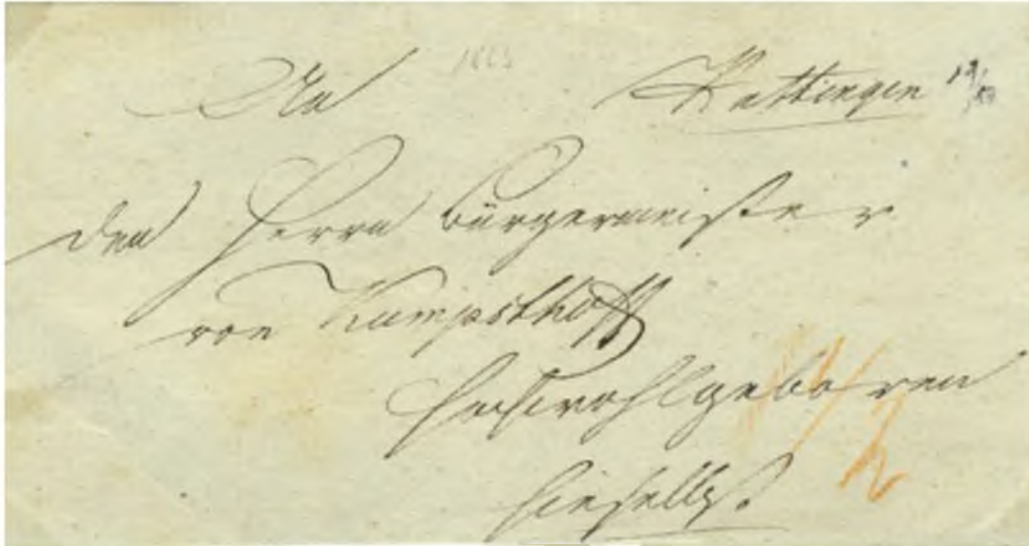 An Hattingen 12/10
den Herrn Bürgermeister
von Kumpsthoff
Hochwohlgeboren
hieselbst.